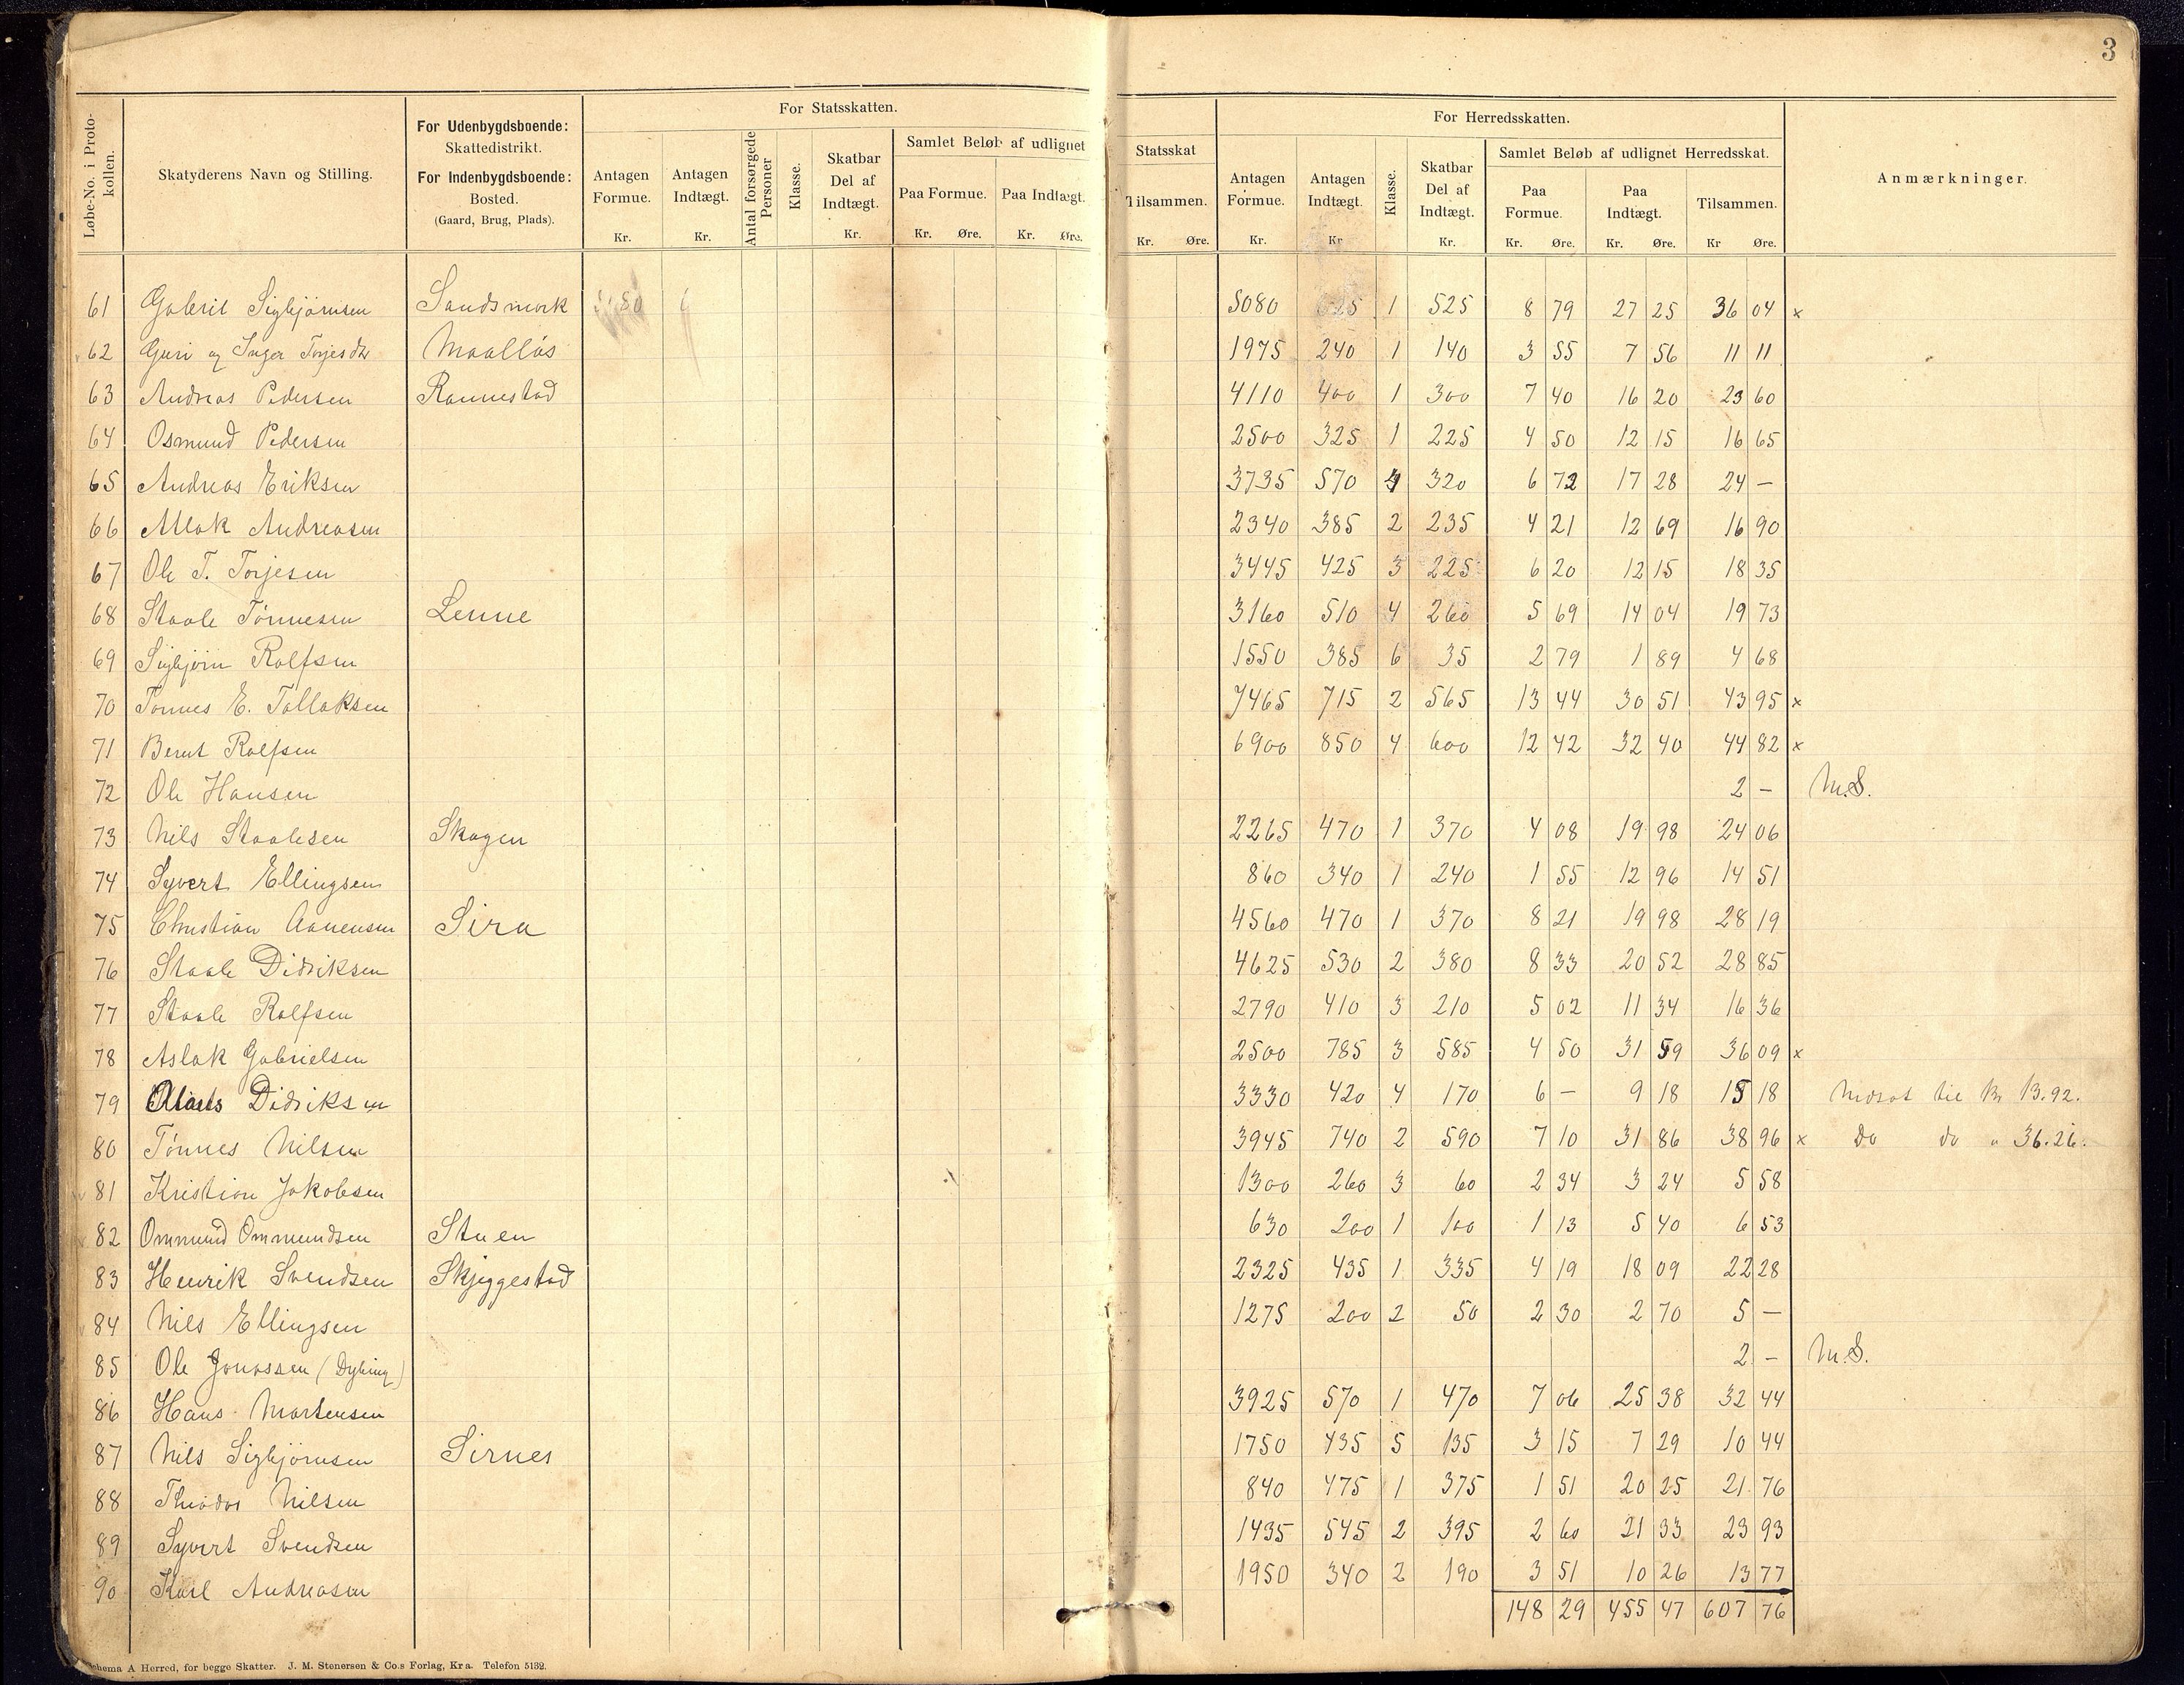 3
Løbe-No. i Protokollen.
Skatyderens Navn og Stilling.
For Udenbygdsboende:
Skattedistrikt.
For Indenbygdsboende:
Bosted.
(Gaard, Brug, Plads).
For Statsskatten.
Antagen Formue. Kr.
Antagen Indtægt. Kr.
Antal forsørgede Personer
Klasse.
Skatbar Del af Indtægt. Kr.
Samlet Beløb af udlignet Statsskat
Paa Formue. Kr. Øre.
Paa Indtægt. Kr. Øre.
Tilsammen. Kr. Øre.
For Herredsskatten.
Antagen Formue. Kr.
Antagen Indtægt. Kr
Klasse.
Skatbar Del af Indtægt. Kr.
Samlet Beløb af udlignet Herredsskat.
Paa Formue. Kr. Øre.
Paa Indtægt. Kr. Øre.
Tilsammen. Kr Øre.
Anmærkninger.
61 Gabriel Sigbjørnsen Sandsmork 5080 625 1 525 8 79 27 25 36 04 x
62 Guri og Inger Torjesdtr Maallås 1975 240 1 140 3 55 7 56 11 11
63 Andreas Pedersen Rannestad 4110 400 1 300 7 40 16 20 23 60
64 Osmund Pedersen 2500 325 1 225 4 50 12 15 16 65
65 Andreas Eriksen 3735 570 4 320 6 72 17 28 24 —
66 Atlak Andreasen 2340 385 2 235 4 21 12 69 16 90
67 Ole T. Torjesen 3445 425 3 225 6 20 12 15 18 35
68 Staale Tønnesen Lenne 3160 510 4 260 5 69 14 04 19 73
69 Sigbjørn Rolfsen 1550 385 6 35 2 79 1 89 4 68
70 Tønnes E. Tallaksen 7465 715 2 565 13 44 30 51 43 95 x
71 Bernt Rolfsen 6900 850 4 600 12 42 32 40 44 82 x
72 Ole Hansen 2 — M.S.
73 Nils Staalesen Skogen 2265 470 1 370 4 08 19 98 24 06
74 Syvert Ellingsen 860 340 1 240 1 55 12 96 14 51
75 Christian Aanensen Sira 4560 470 1 370 8 21 19 98 28 19
76 Staale Didriksen 4625 530 2 380 8 33 20 52 28 85
77 Staale Rolfsen 2790 410 3 210 5 02 11 34 16 36
78 Aslak Gabrielsen 2500 785 3 585 4 50 31 59 36 09 x
79 Didriksen 3330 420 4 170 6 — 9 18 15 18 Nedsat til Kr 13.92.
80 Tønnes Nilsen 3945 740 2 590 7 10 31 86 38 96 x Do do " 36.26.
81 Kristian Jakobsen 1300 260 3 60 2 34 3 24 5 58
82 Ommund Ommundsen Stuen 630 200 1 100 1 13 5 40 6 53
83 Henrik Svendsen Skjeggestad 2325 435 1 335 4 19 18 09 22 28
84 Nils Ellingsen 1275 200 2 50 2 30 2 70 5 —
85 Ole Jonassen (Dybing) 2 — M.S.
86 Hans Martensen 3925 570 1 470 7 06 25 38 32 44
87 Nils Sigbjørnsen Sirnes 1750 435 5 135 3 15 7 29 10 44
88 Theodor Nilsen 840 475 1 375 1 51 20 25 21 76
89 Syvert Svendsen 1435 545 2 395 2 60 21 33 23 93
90 Karl Andreasen 1950 340 2 190 3 51 10 26 13 77
148 29 455 47 607 76
Schema A Herred, for begge Skatter. J. M. Stenersen & Co.s Forlag, Kra. Telefon 5132.